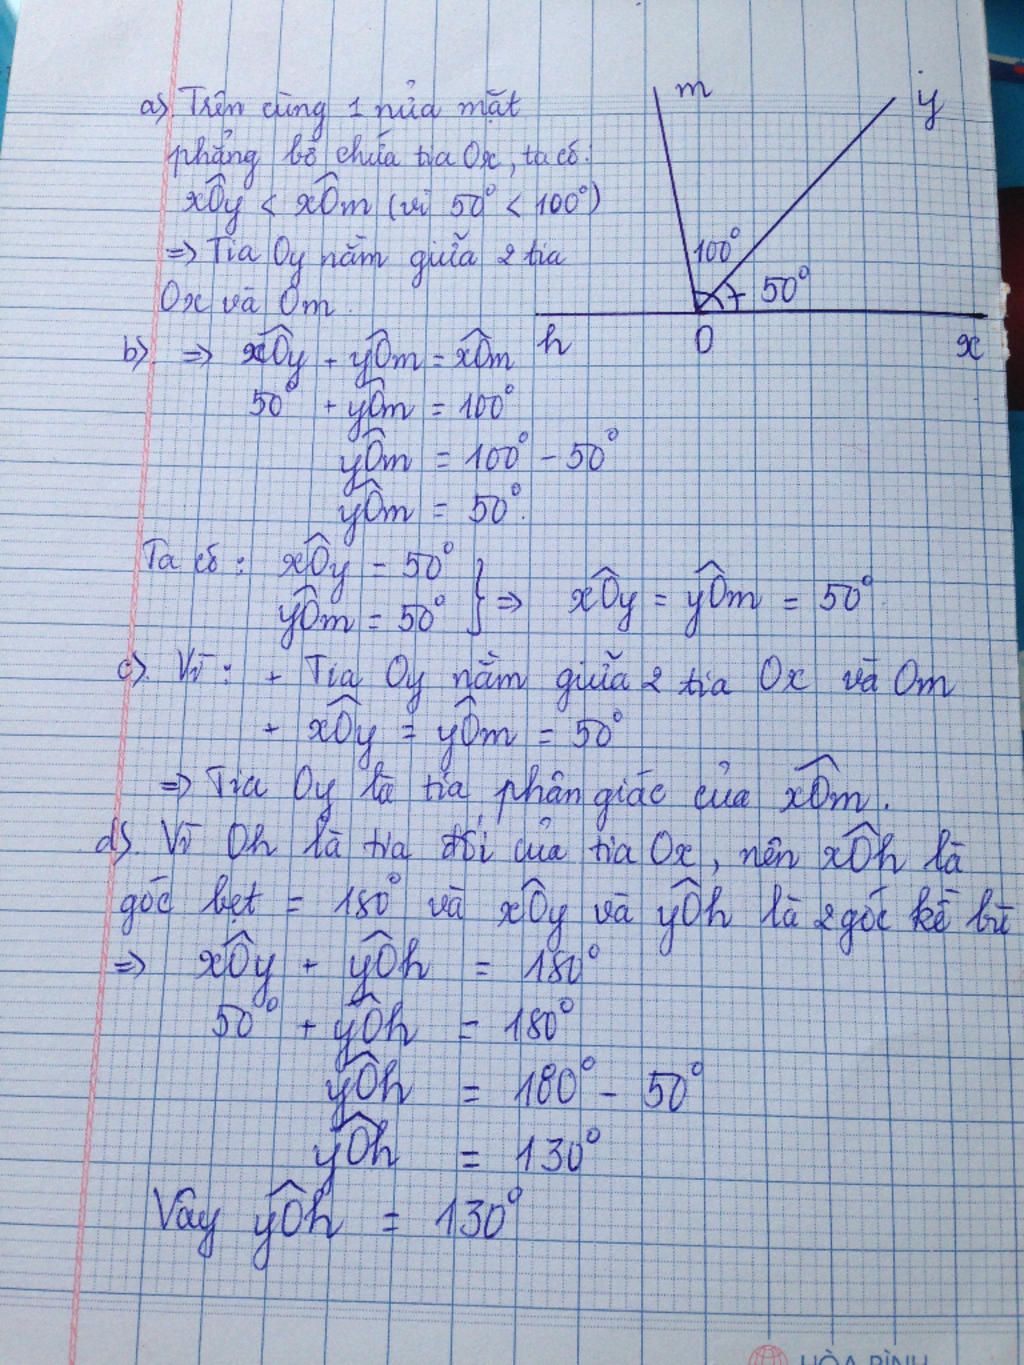 a) Trên cùng 1 nửa mặt
phẳng bờ chứa tia Ox, ta có:
xÔy < xÔm (vì 50° < 100°)
=> Tia Oy nằm giữa 2 tia
Ox và Om.
m
y
100°
50°
h
O
x
b) => xÔy + yÔm = xÔm
50° + yÔm = 100°
yÔm = 100° - 50°
yÔm = 50°.
Ta có: xÔy = 50°
yÔm = 50° } => xÔy = yÔm = 50°.
c) Vì: + Tia Oy nằm giữa 2 tia Ox và Om
+ xÔy = yÔm = 50°
=> Tia Oy là tia phân giác của xÔm.
d) Vì Oh là tia đối của tia Ox, nên xÔh là
góc bẹt = 180° và xÔy và yÔh là 2 góc kề bù
=> xÔy + yÔh = 180°
50° + yÔh = 180°
yÔh = 180° - 50°
yÔh = 130°
Vậy yÔh = 130°
HÒA BÌNH